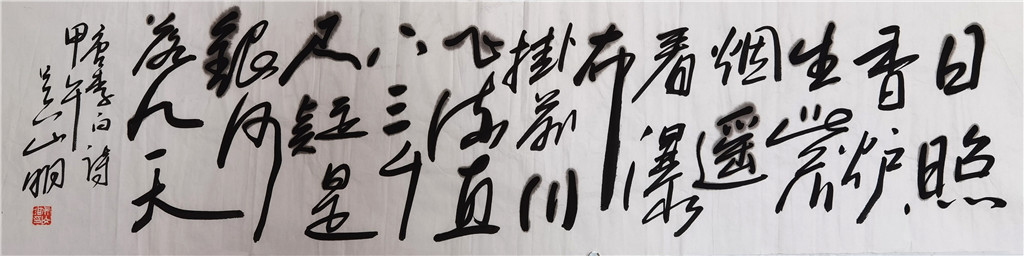 日照
香炉
生紫
烟遥
看瀑
布
掛前川
飞流直
下三千
尺疑是
銀河
落九天
唐李白诗
甲午
吴山明